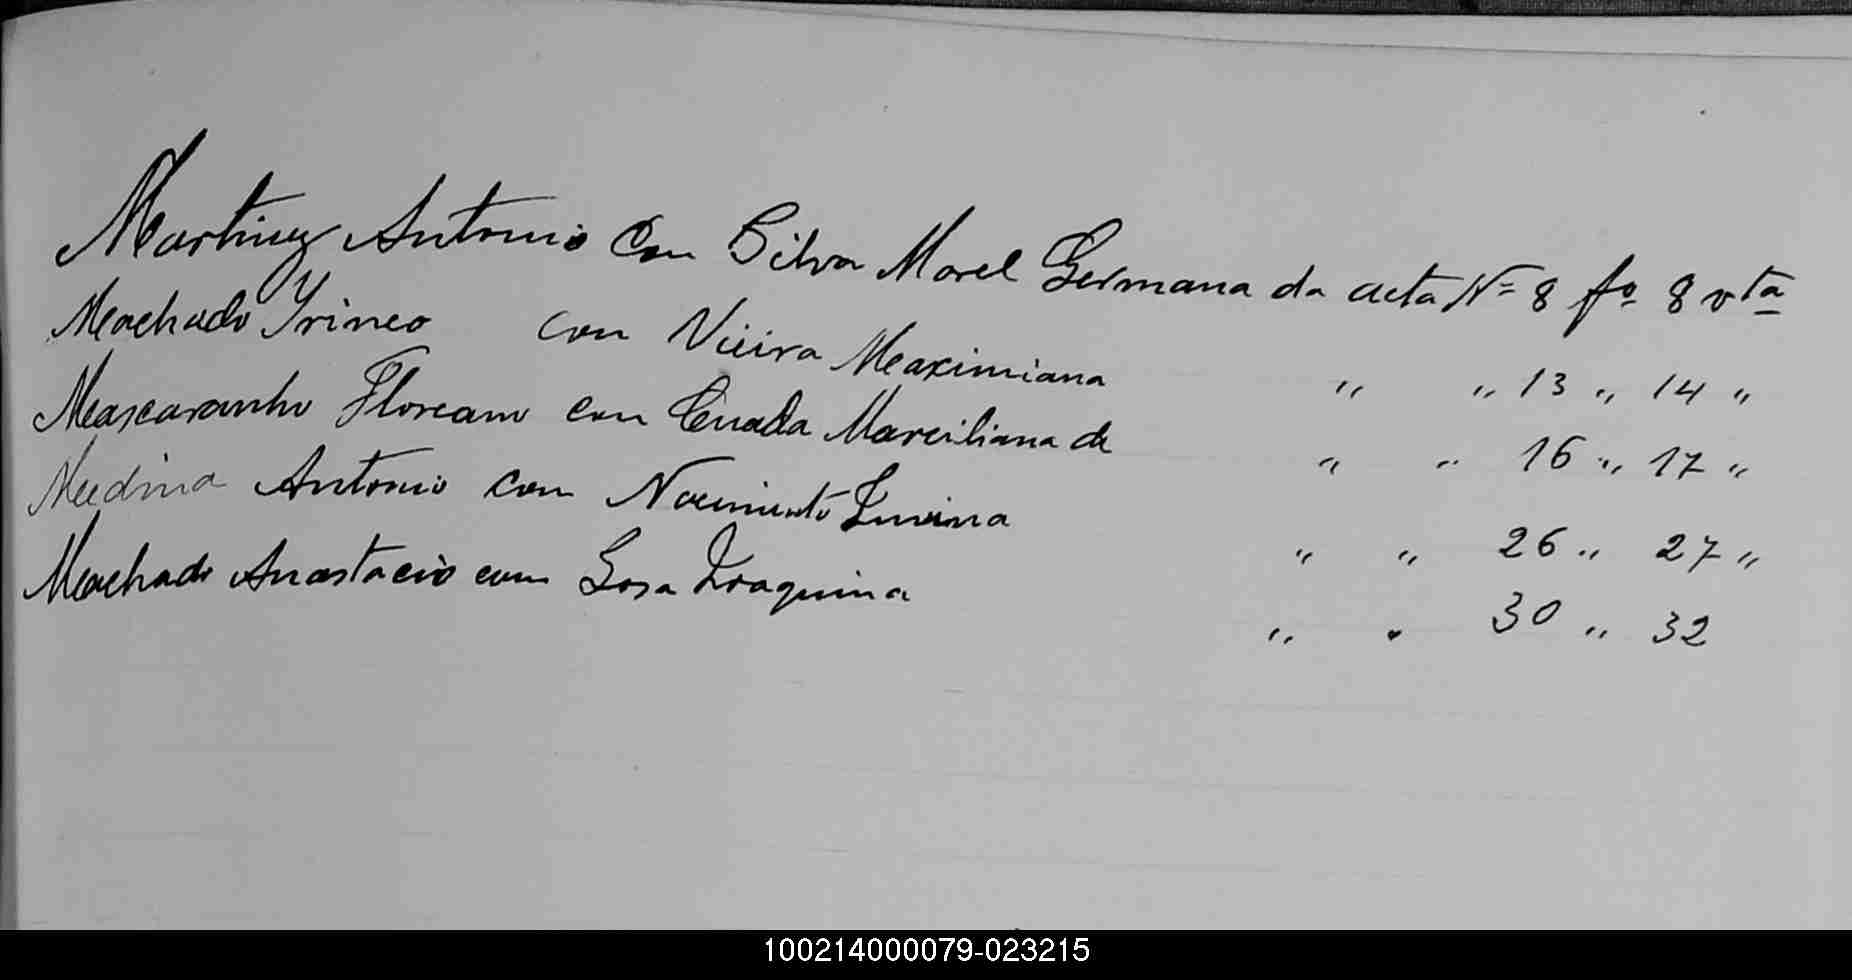 Martinez Antonio con Silva Morel Germana da acta Nº 8 fº 8 vta
Machado Yrineo con Vieira Maximiana " " 13 " 14 "
Mascaranho Floreano con Cuada Marciliana de " " 16 " 17 "
Medina Antonio con Nacimiento " " 26 " 27 "
Machado Anastacio con Sosa Joaquina " " 30 " 32
100214000079-023215